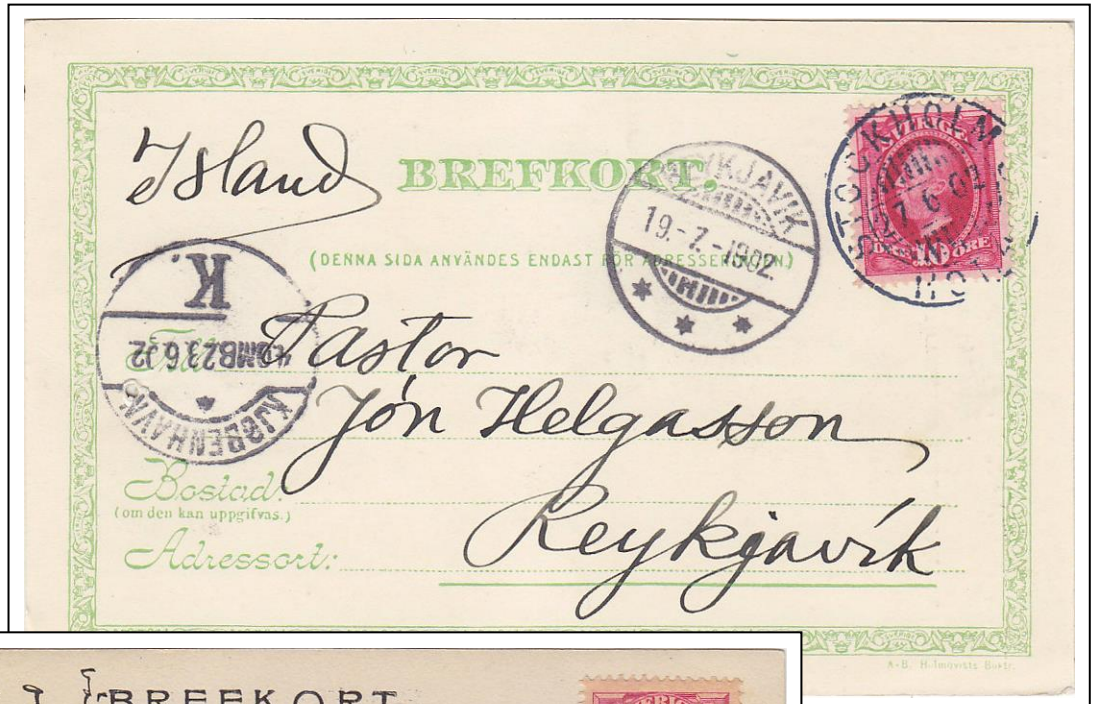 Island
BREFKORT.
(DENNA SIDA ANVÄNDES ENDAST FÖR ADRESSERINGEN)
REYKJAVIK
19.-7.-1902
STOCKHOLM
SVERIGE
10 ÖRE
K.
4OMB 23.6.02
KJØBENHAVN
Till
Pastor
Jón Helgasson
Bostad:
(om den kan uppgifvas.)
Reykjavík
Adressort:
A-B. Holmqvists Boktr.
BREFKORT